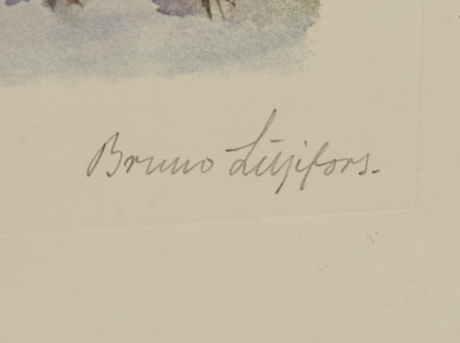 Bruno Liljefors.